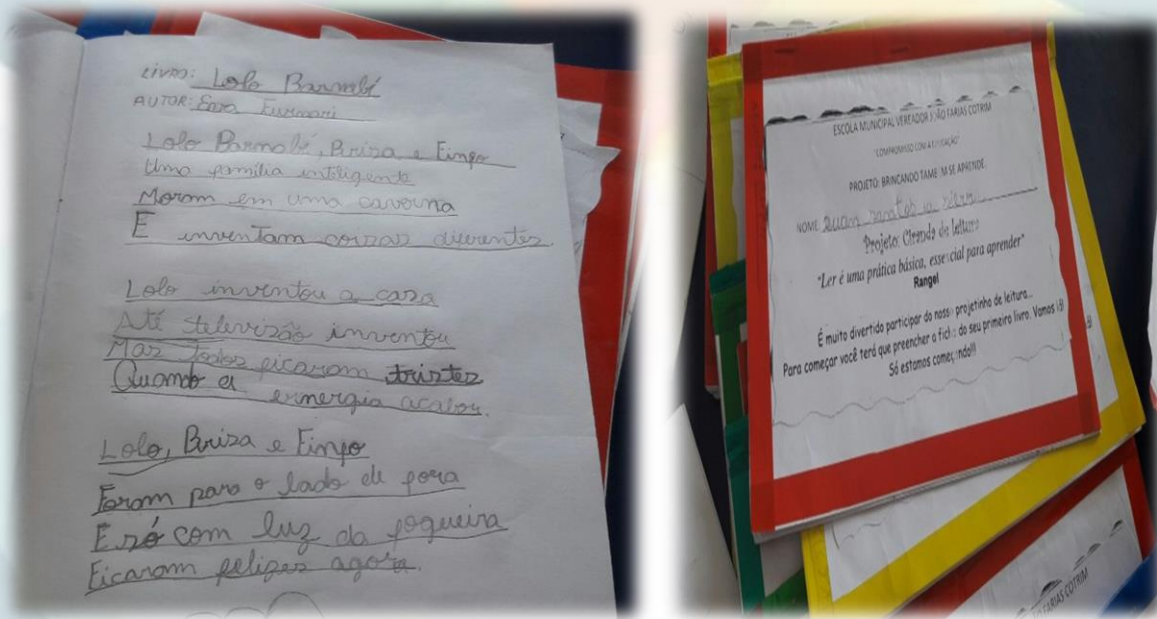 LIVRO: Lolo Barnabé
AUTOR: Eva Furnari
Lolo Barnabé, Brisa e Finfo
Uma família inteligente
Moram em uma caverna
E inventam coizas diferentes
Lolo inventou a caza
Até televizão inventou
Mas todos ficaram tristes
Quando a energia acabou.
Lolo, Briza e Finfo
Foram para o lado de fora
E só com luz da fogueira
Ficaram felizes agora.
ESCOLA MUNICIPAL VEREADOR JOÃO FARIAS COTRIM
"COMPROMISSO COM A EDUCAÇÃO"
PROJETO: BRINCANDO TAMBÉM SE APRENDE.
NOME: santos
Projeto: Ciranda de leitura
"Ler é uma prática básica, essencial para aprender"
Rangel
É muito divertido participar do nosso projetinho de leitura...
Para começar você terá que preencher a ficha do seu primeiro livro. Vamos lá!
Só estamos começando!!!
FARIAS COTRIM